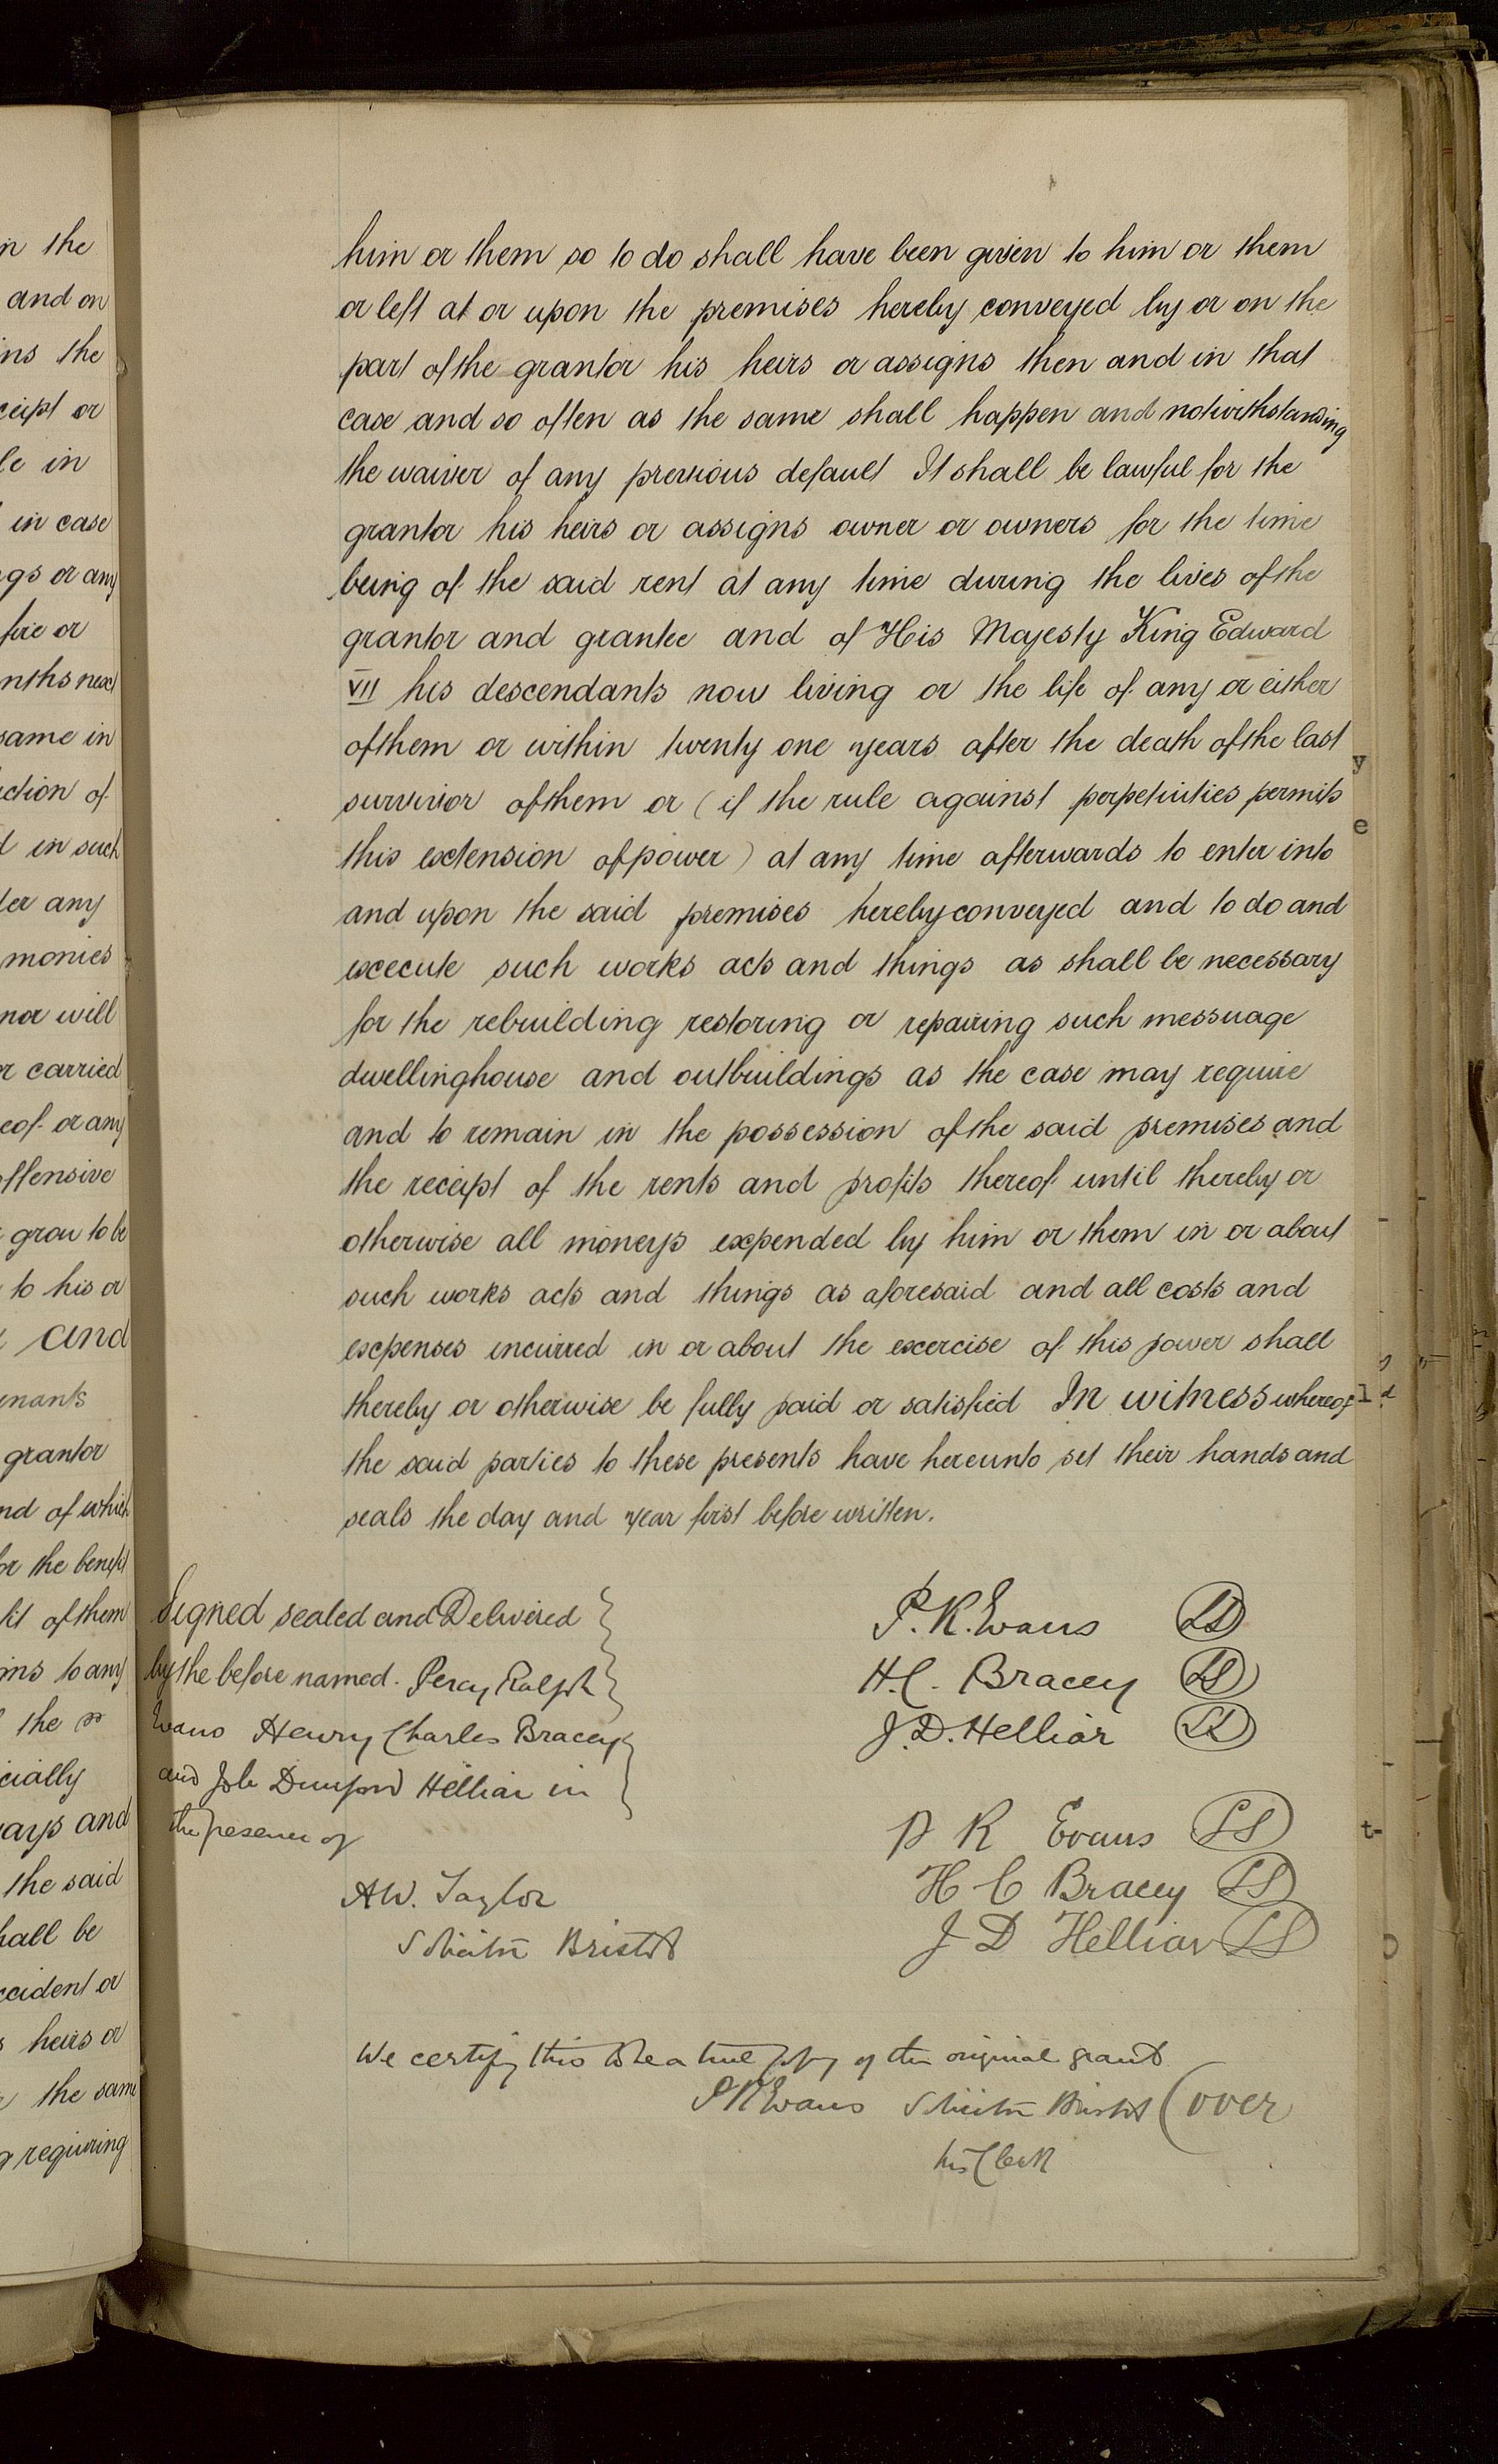 n the
and on
ns the
ceipt or
le in
in case
gs or any
fire or
nths next
same in
ction of
d in such
der any
monies
nor will
or carried
eof or any
offensive
grow to be
to his or
and
enants
grantor
nd of which
for the benefit
fit of them
ns to any
the
cially
ays and
the said
hall be
ccident or
heirs or
the same
requiring
him or them so to do shall have been given to him or them
or left at or upon the premises hereby conveyed by or on the
part of the grantor his heirs or assigns then and in that
case and so often as the same shall happen and notwithstanding
the waiver of any previous default It shall be lawful for the
grantor his heirs or assigns owner or owners for the time
being of the said rent at any time during the lives of the
grantor and grantee and of His Majesty King Edward
VII his descendants now living or the life of any or either
of them or within twenty one years after the death of the last
survivor of them or (if the rule against perpetuities permits
this extension of power) at any time afterwards to enter into
and upon the said premises hereby conveyed and to do and
execute such works acts and things as shall be necessary
for the rebuilding restoring or repairing such messuage
dwellinghouse and outbuildings as the case may require
and to remain in the possession of the said premises and
the receipt of the rents and profits thereof until thereby or
otherwise all moneys expended by him or them in or about
such works acts and things as aforesaid and all costs and
expenses incurred in or about the exercise of this power shall
thereby or otherwise be fully paid or satisfied In witness whereof
the said parties to these presents have hereunto set their hands and
seals the day and year first before written.
Signed sealed and Delivered
by the before named Percy Ralph
Evans Henry Charles Bracey
and John Dunford Helliar in
the presence of
A.W. Taylor
Solicitor Bristol
P. R. Evans LS
H. C. Bracey LS
J. D. Helliar LS
P R Evans LS
H C Bracey LS
J D Helliar LS
We certify this to be a true copy of the original grant
P R Evans Solicitor Bristol (over
his Clerk
y
e
t-